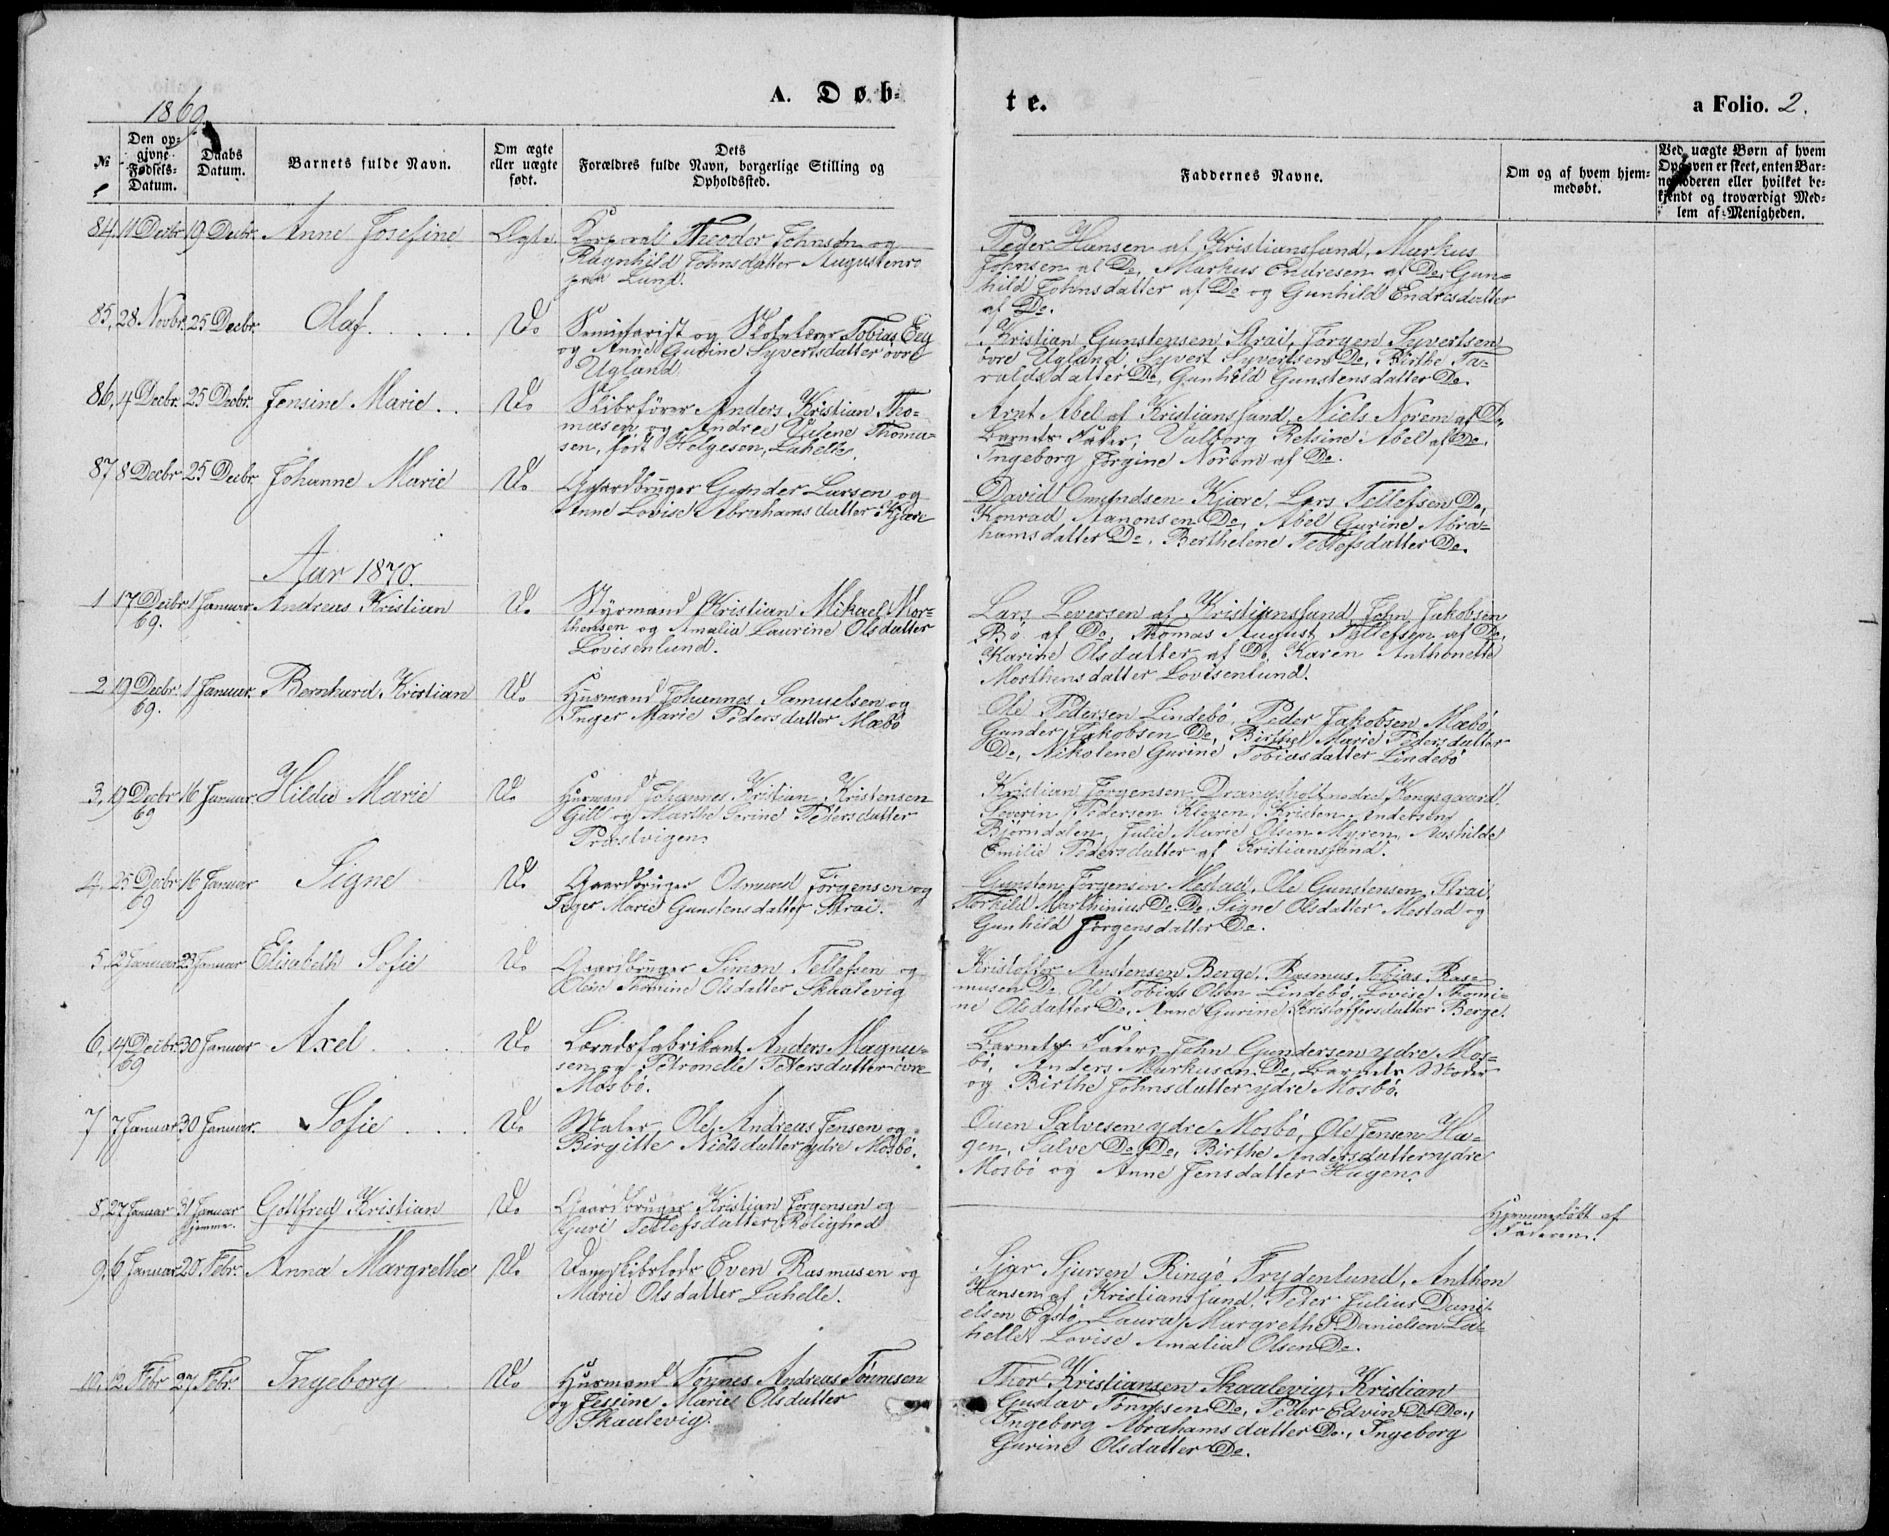 1869.
A. Døb-
te.
a Folio. 2.
№
Den op-
givne
Fødsels-
Datum.
Daabs
Datum.
Barnets fulde Navn.
Om ægte
eller uægte
født.
Dets
Forældres fulde Navn, borgerlige Stilling og
Opholdssted.
Faddernes Navne.
Om og af hvem hjem-
medøbt.
Ved uægte Børn af hvem
Opgaven er skeet, enten Bar-
nemoderen eller hvilket be-
kjendt og troværdigt Med-
lem af Menigheden.
84. 11 Decbr 19 Decbr. Anne Josefine Ægte. Korporal Theodor Johnsen og
Ragnhild Johnsdatter Augustenro
paa Lund.
Peder Hansen af Kristianssand, Markus
Johnsen af Do, Markus Endresen af Do, Gun-
hild Johnsdatter af Do og Gunhild Endresdatter
af Do.
85, 28 Novbr. 25 Decbr. Olaf. Do Seminarist og Skolelærer Tobias Eeg
og Anne Gurine Syvertsdatter övre
Ugland.
Kristian Gunstensen Strai, Jörgen Syvertsen
övre Ugland Syvert Syvertsen Do, Birthe Ta-
raldsdatter Do, Gunhild Gunstensdatter Do.
86, 4 Decbr. 25 Decbr. Jensine Marie. Do Skibsförer Anders Kristian Tho-
masen og Andrea Thoma-
sen, födt Helgesen, Lahelle.
Arnt Abel af Kristianssand, Niels Norem af Do,
Barnets Fader, Valborg Retsine Abel af Do,
Ingeborg Jörgine Norem af Do.
87 8 Decbr 25 Decbr. Johanne Marie Do Gaardbruger Gunder Larsen og
Anne Lovise Abrahamsdatter Kjære
David Omundsen Kjære, Lars Tellefsen Do,
Konrad Aanonsen Do, Abel Gurine Abra-
hamsdatter Do, Berthelene Tellefsdatter Do.
Aar 1870.
1 17 Decbr. 69. 1 Januar. Andreas Kristian Do Styrmand Kristian Mikael Mor-
thensen og Amalia Laurine Olsdatter
Lovisenlund.
Lars Leversen af Kristianssand, John Jakobsen
Bö af Do, Thomas August Tellefsen af Do,
Karine Olsdatter af Do Karen Anthonette
Morthensdatter Lovisenlund.
2 19 Decbr. 69. 1 Januar. Bernhard Kristian Do Husmand Johannes Samuelsen og
Inger Marie Pedersdatter Mæbö
Ole Pedersen Lindebö, Peder Jakobsen Mæbö,
Gunder Jakobsen Do, Birthe Marie Pedersdatter
Do, Nikolene Gurine Tobiasdatter Lindebö
3, 19 Decbr 69 16 Januar. Hilda Marie Do Husmand Johannes Kristian Kristensen
Gill og Marthe Serine Petersdatter
Præstvigen.
Kristian Jörgensen Drangsholt nedre, Kongsgaard,
Severin Pedersen Kleven, Kristen Andersen
Björndalen, Julie Marie Olsen Myren, Mathilde
Emilie Pedersdatter af Kristianssand.
4, 25 Decbr. 69 16 Januar Signe Do Gaardbruger Osmund Jörgensen og
Inger Marie Gunstensdatter Strai.
Gunsten Jörgensen Mestad, Ole Gunstensen Strai,
Torkild Marthinius Do Do, Signe Olsdatter Mestad og
Gunhild Jörgensdatter Do.
5, 2 Januar 23 Januar Elisabeth Sofie Do Gaardbruger Simon Tellefsen og
Thomine Olsdatter Skaalevig
Kristoffer Anstensen Berge, Rasmus Tobias Ras-
musen Do, Ole Tobias Olsen Lindebö, Lovise Thomi-
ne Olsdatter Do, Anne Gurine Kristoffersdatter Berge.
6, 14 Decbr. 69 30 Januar Axel Do Lærredsfabrikant Anders Magnu-
sen og Petronelle Petersdatter övre
Mosbö.
Barnets Fader, John Gundersen ydre Mos-
bö, Anders Markusen Do, Barnets Moder
og Birthe Johnsdatter ydre Mosbö.
7 7 Januar 30 Januar. Sofie Do Maler Ole Andreas Jensen og
Birgitte Nielsdatter ydre Mosbö.
Ouen Salvesen ydre Mosbö, Ole Jensen Ha-
gen, Salve Do Do, Birthe Andersdatter ydre
Mosbö og Anne Jensdatter Hagen.
8, 27 Januar 31 Januar hjemme. Gottfred Kristian Do Gaardbruger Kristian Jörgensen og
Guri Tellefsdatter Rolighed
Hjemmedöbt af
Faderen.
9, 6 Januar 20 Febr. Anna Margrethe Do Dampskibslods Even Rasmusen og
Marie Olsdatter Lahelle.
Sjur Sjursen Ringö Frydenlund, Anthon
Hansen af Kristianssand, Peder Julius Dani-
elsen Egsö, Laura Margrethe Danielsen La-
helle Lovise Amalia Olsen Do.
10, 12 Febr 27 Febr. Ingeborg Do Husmand Tönnes Andreas Tönnesen
og Jessine Marie Olsdatter
Skaalevig.
Thor Kristiansen Skaalevig, Kristian
Gustav Tönnesen Do, Peder Edvin Do Do,
Ingeborg Abrahamsdatter Do, Ingeborg
Gurine Olsdatter Do.